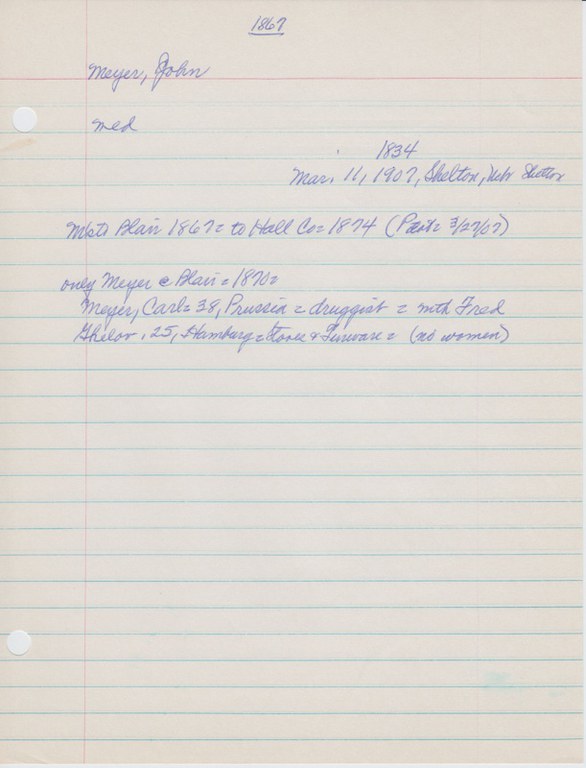 1867
Meyer, John
med
1834
Mar. 11, 1907, Shelton, Nebr Shelton
to Blair 1867 = to Hall Co = 1874 (Past = 3/27/07)
only Meyer @ Blair = 1870 =
Meyer, Carl = 38, Prussia = druggist = with Fred
25, Hamburg = Stoves & Tinware = (no women)